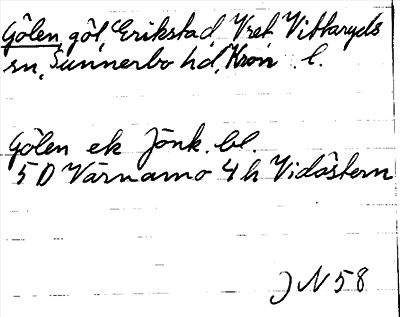 Gölen, göl, Erikstad, Vret Vittaryds
sn, Sunnerbo hd, Kron. l.
Gölen ek Jönk. bl.
5 D Värnamo 4 h Vidöstern
J N 58